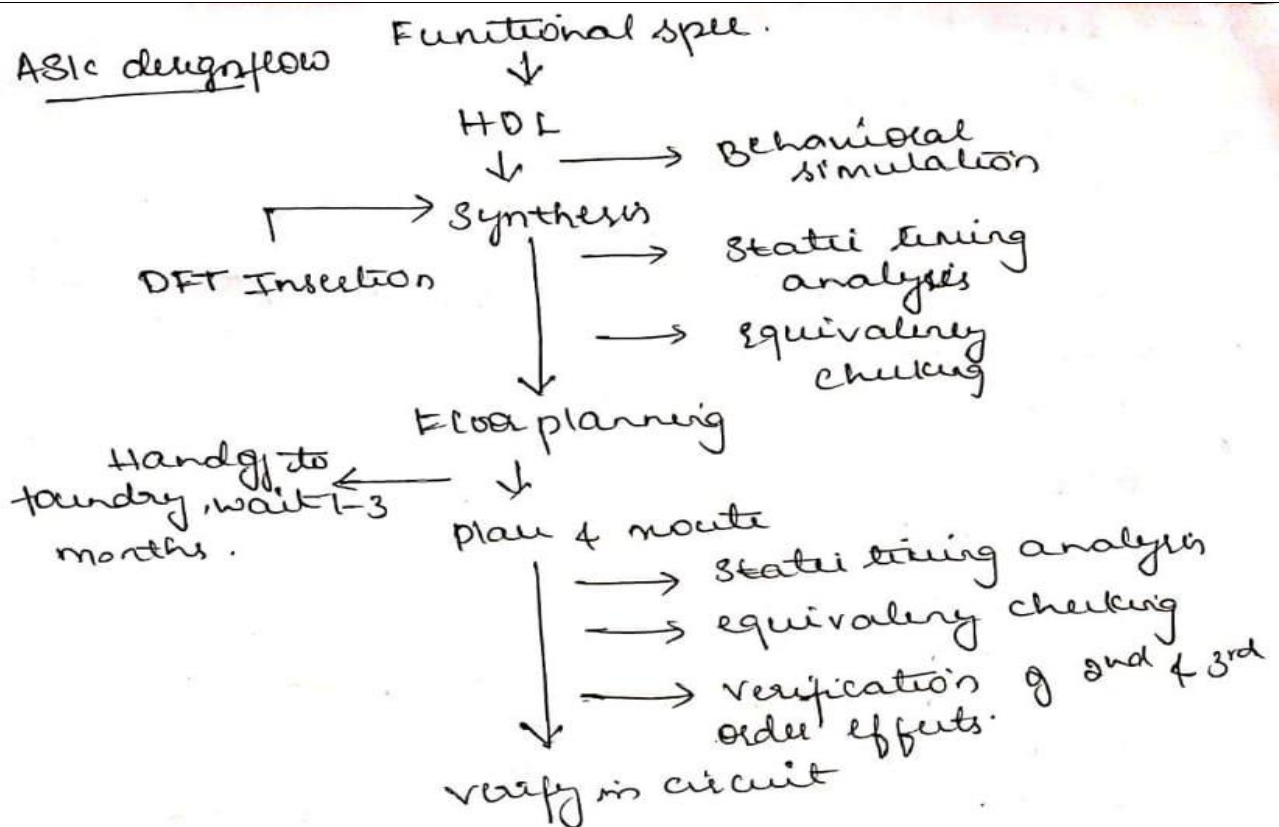 Functional spec.
ASIC design flow
HDL
Behavioral
simulation
Synthesis
DFT Insertion
Static timing
analysis
Equivalency
checking
Floor planning
Handoff to
foundry, wait 1-3
months.
Place & route
Static timing analysis
equivalency checking
verification of 2nd & 3rd
order effects.
verify in circuit